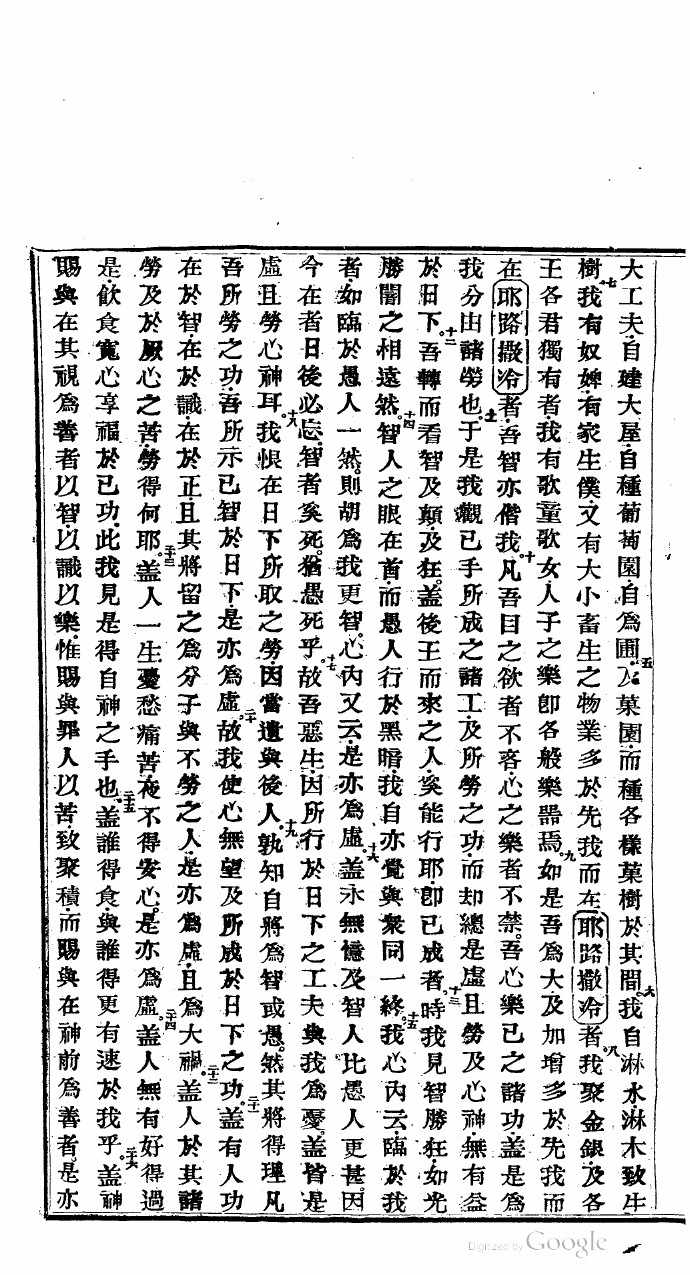 大工夫自建大屋自種葡萄園自爲圃五及菓園而種各樣菓樹於其間六我自淋水淋木致生
樹七我有奴婢有家生僕又有大小畜生之物業多於先我而在耶路撒冷者八我聚金銀及各
王各君獨有者我有歌童歌女人子之樂卽各般樂噐焉九如是吾爲大及加增多於先我而
在耶路撒冷者吾智亦偕我十凡吾目之欲者不吝心之樂者不禁吾心樂已之諸功蓋是爲
我分由諸勞也十一于是我觀已手所成之諸工及所勞之功而却總是虛且勞及心神無有益
於日下十二吾轉而看智及顛及狂蓋後王而來之人奚能行耶卽已成者十三時我見智勝狂如光
勝闇之相遠然十四智人之眼在首而愚人行於黑暗我自亦覺與衆同一終十五我心內云臨於我
者如臨於愚人一然則胡爲我更智心內又云是亦爲虛十六蓋永無憶及智人比愚人更甚因
今在者日後必忘智者奚死猶愚死乎十七故吾惡生因所行於日下之工夫與我爲憂蓋皆是
虛且勞心神耳十八我恨在日下所取之勞因當遺與後人十九孰知自將爲智或愚然其將得理凡
吾所勞之功吾所示已智於日下是亦爲虛二十故我使心無望及所成於日下之功二十一蓋有人功
在於智在於識在於正且其將留之爲分子與不勞之人是亦爲虛且爲大禍二十二蓋人於其諸
勞及於厥心之苦勞得何耶二十三蓋人一生憂愁痛苦夜不得安心是亦爲虛二十四蓋人無有好得過
是飲食寬心享福於已功此我見是得自神之手也二十五蓋誰得食與誰得更有速於我乎二十六蓋神
賜與在其視爲善者以智以識以樂惟賜與罪人以苦致聚積而賜與在神前爲善者是亦
Digitized by Google